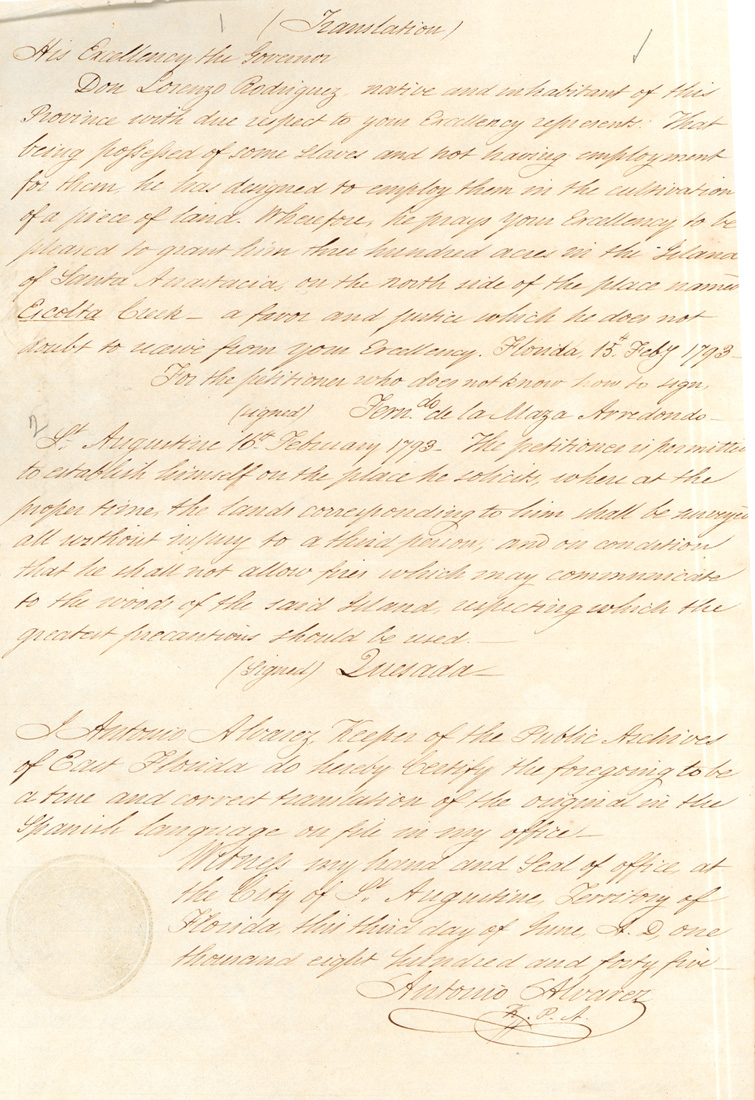 1
(Translation)
His Excellency the Governor
Don Lorenzo Rodriguez, native and inhabitant of this
Province with due respect to your Excellency represents: That
being possessed of some slaves and not having employment
for them, he has designed to employ them in the cultivation
of a piece of land. Wherefore, he prays your Excellency to be
pleased to grant him three hundred acres in the Island
of Santa Anastacia, on the north side of the place named
Escolta Creek — a favor and justice which he does not
doubt to receive from your Excellency. Florida, 15th Feby 1793 —
For the petitioner who does not know how to sign,
(signed) Fern.do de la Maza Arredondo —
2
St. Augustine 16th February 1793 — The petitioner is permitted
to establish himself on the place he solicits, where at the
proper time, the lands corresponding to him shall be surveyed
all without injury to a third person, and on condition
that he shall not allow fires which may communicate
to the woods of the said Island, respecting which the
greatest precautions should be used. —
(Signed) Quesada —
I Antonio Alvarez, Keeper of the Public Archives
of East Florida do hereby Certify the foregoing to be
a true and correct translation of the original in the
Spanish language on file in my office —
Witness my hand and Seal of office, at
the City of St. Augustine, Territory of
Florida, this third day of June, A. D, one
thousand eight hundred and forty five —
Antonio Alvarez
K. P. A.